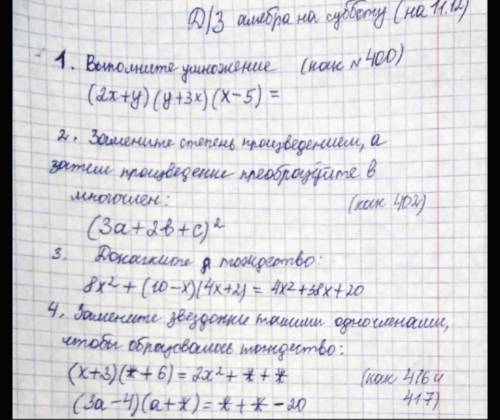 Д/З алгебра на субботу (на 11.12)
1. Выполните умножение (как №400)
(2x+y)(y+3x)(x-5) =
2. Замените степень произведением, а
затем произведение преобразуйте в
многочлен: (как 402)
(3a+2b+c)²
3. Докажите тождество:
8x² + (10-x)(4x+2) = 4x²+38x+20
4. Замените звездочки такими одночленами,
чтобы образовалось тождество:
(x+3)(*+6) = 2x²+*+* (как 416 и
(3a-4)(a+*)=*+*-20 417)